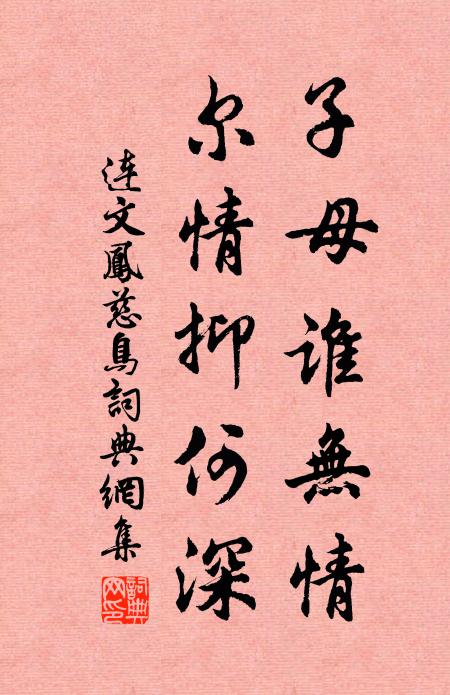 子母誰無情
尔情抑何深
連文鳳慈烏詞典網集
詞典网印